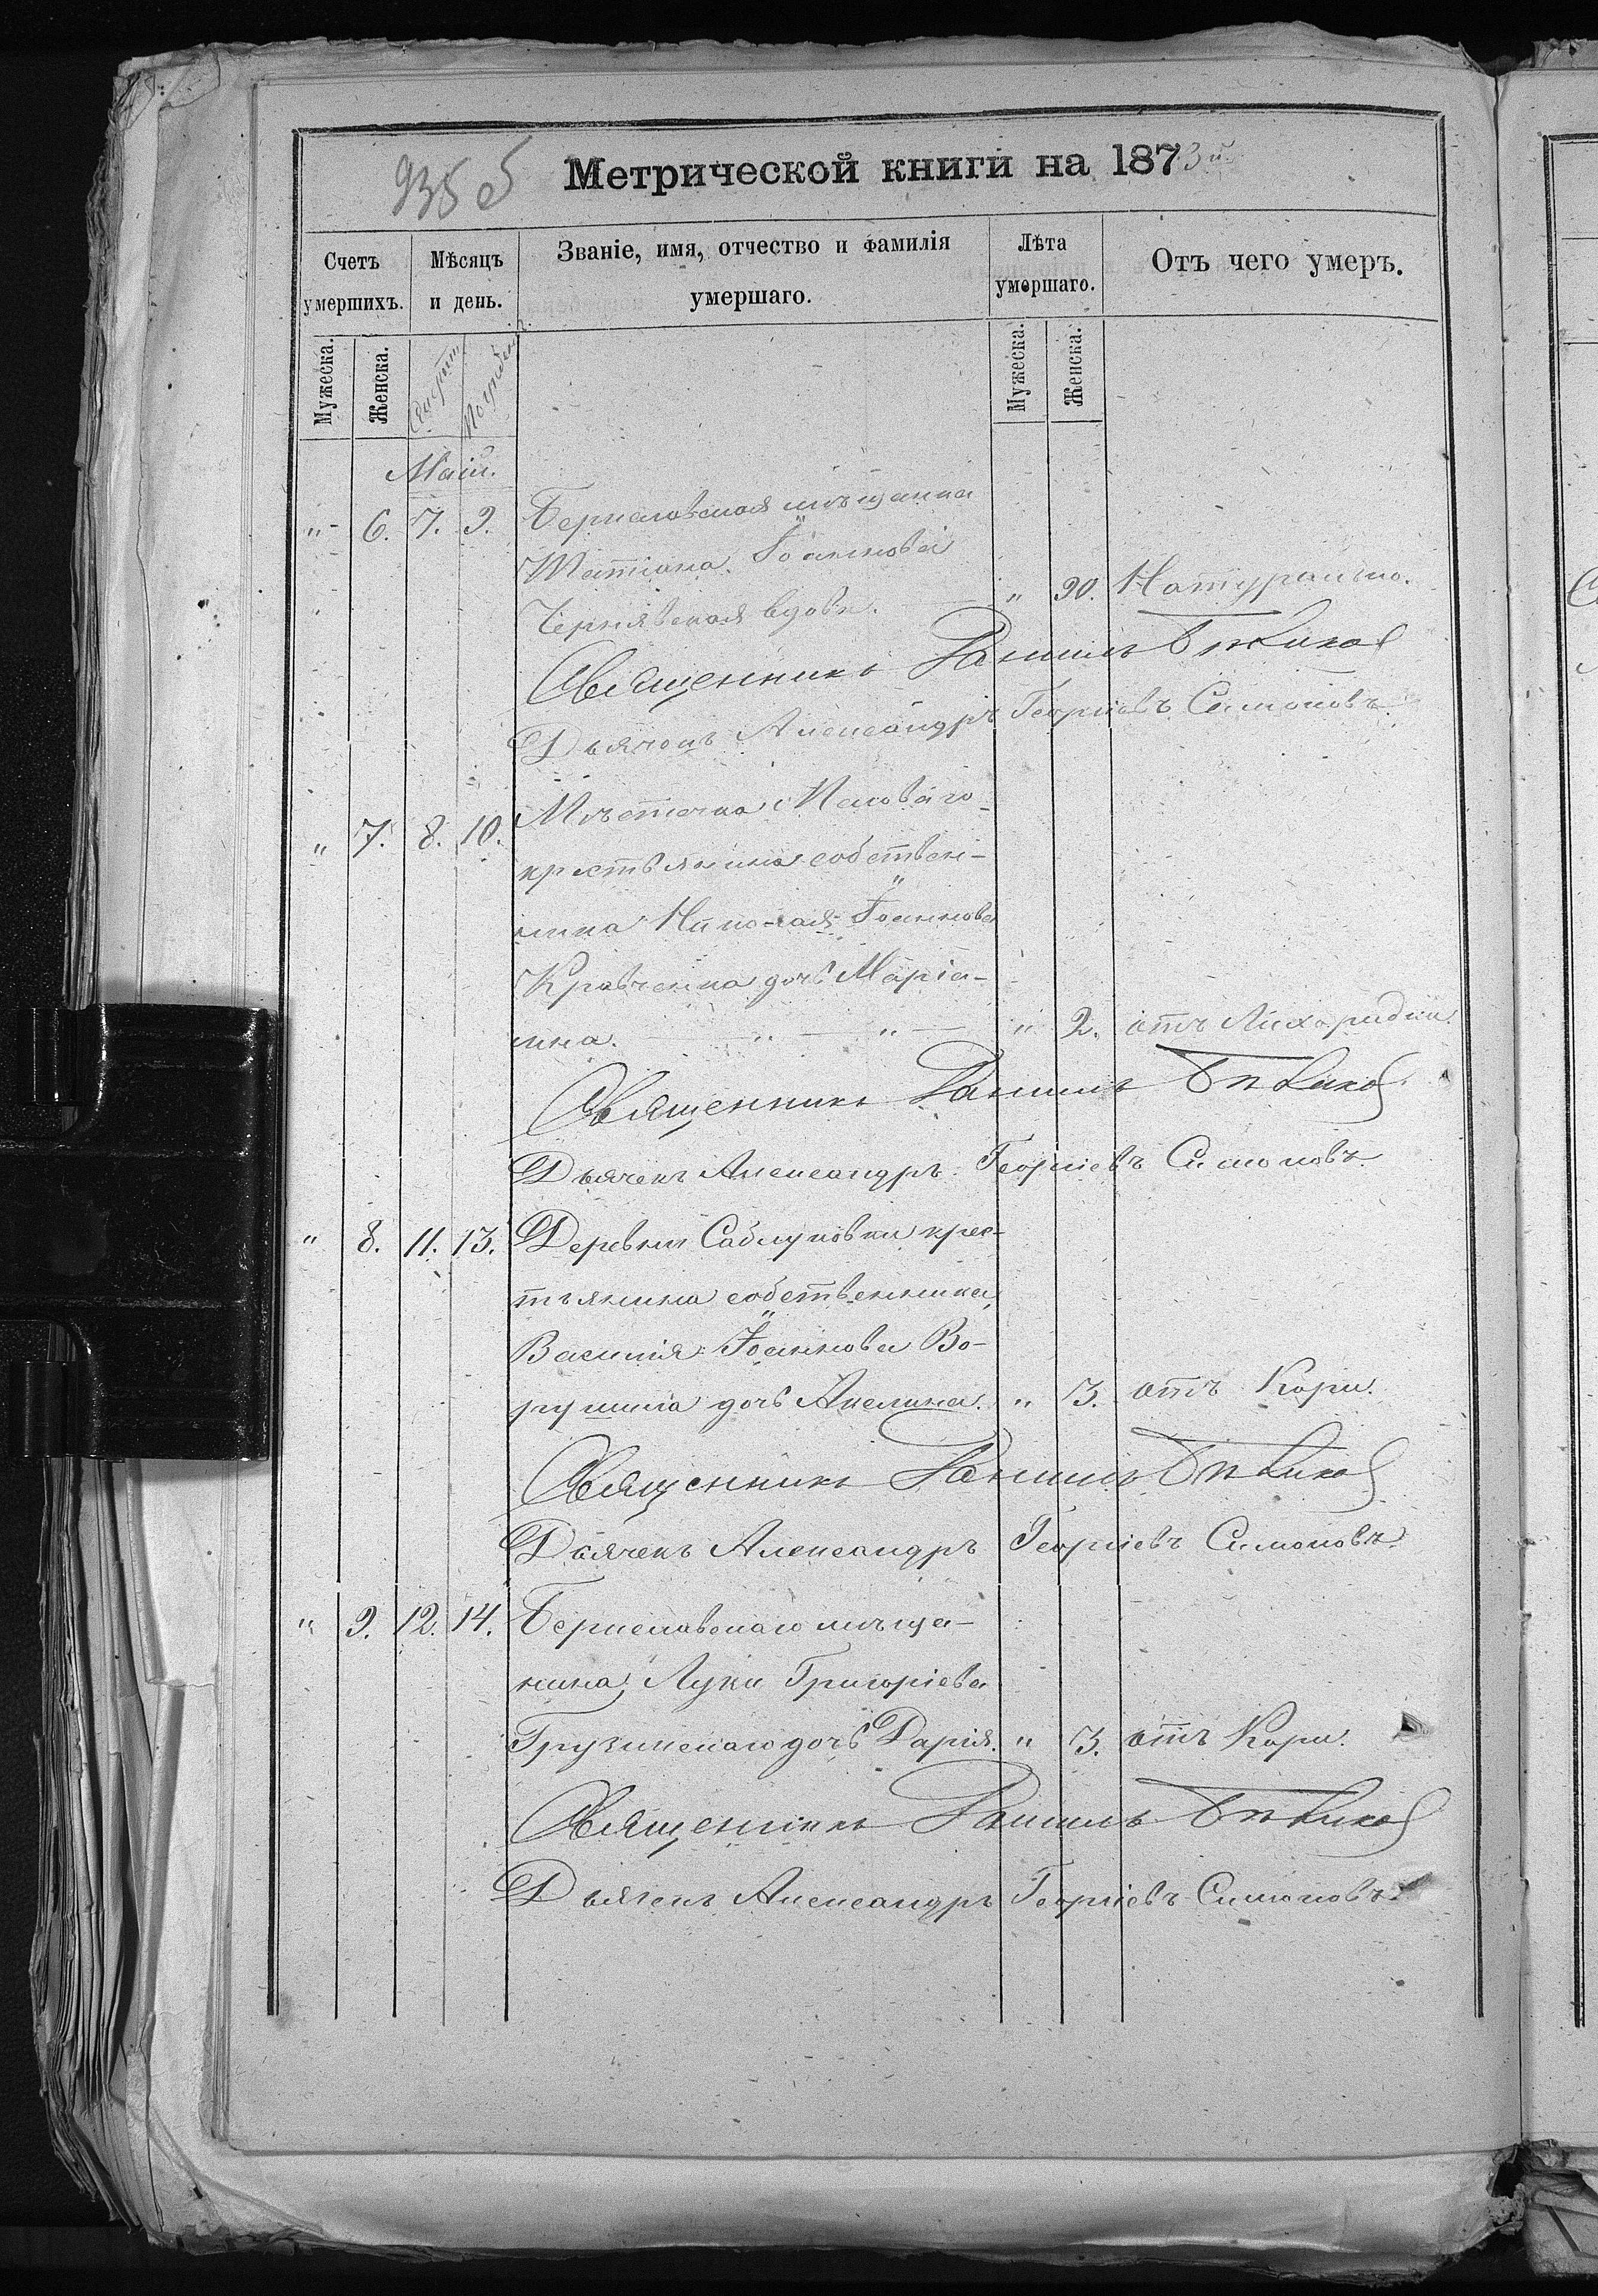 935 б Метрической книги на 1873 й.
Счетъ умершихъ. Мѣсяцъ и день. Званіе, имя, отчество и фамилія умершаго. Лѣта умершаго. Отъ чего умеръ.
Мужеска. Женска. Смерти. Погребенія. Мужеска. Женска.
Май.
"- 6. 7. 9. Бериславская мѣщанка
Татіана Іоаннова
Чернявская вдова. — " 90. Натурально.
Священникъ Даніилъ
Дьячекъ Александръ Георгіевъ Симоновъ.
" 7. 8. 10. Мѣстечка Меловаго
крестьянина собствен-
ника Николая Іоаннова
Кравченка дочь Маріа-
мна. — " — " — " 2. отъ Лихорадки.
Священникъ Даніилъ
Дьячекъ Александръ Георгіевъ Симоновъ.
" 8. 11. 13. Деревни Саблуковки крес-
тьянина собственника
Василія Іоаннова Во-
рушила дочь Акелина. " 3. отъ Кори.
Священникъ Даніилъ
Дьячекъ Александръ Георгіевъ Симоновъ.
" 9. 12. 14. Бериславскаго мѣща-
нина Луки Григоріева
Грузинскаго дочь Дарія. " 3. отъ Кори.
Священникъ Даніилъ
Дьячекъ Александръ Георгіевъ Симоновъ